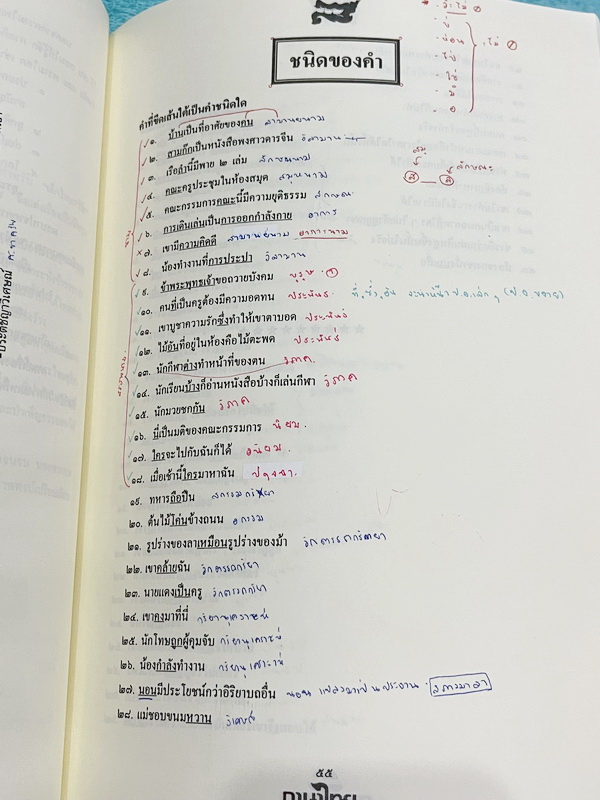 ชนิดของคำ
คำที่ขีดเส้นใต้เป็นคำชนิดใด
๑. บ้านเป็นที่อาศัยของคน สามานยนาม
๒. สามก๊กเป็นหนังสือพงศาวดารจีน วิสามาน
๓. เรือลำนี้มีพาย ๒ เล่ม ลักษณนาม
๔. คณะครูประชุมในห้องสมุด สมุหนาม
๕. คณะกรรมการคณะนี้มีความยุติธรรม ลักษณะ
๖. การเดินเล่นเป็นการออกกำลังกาย อาการ
๗. เขามีความคิดดี สามานย์นาม อาการนาม
๘. น้องทำงานที่การประปา วิสามาน
๙. ข้าพระพุทธเจ้าขอถวายบังคม บุรุษ ๑
๑๐. คนที่เป็นครูต้องมีความอดทน ประพันธ ที่, ซึ่ง, อัน
๑๑. เขาบูชาความรักซึ่งทำให้เขาตาบอด ประพันธ์
๑๒. ไม้อันที่อยู่ในห้องคือไม้ตะพด ประพันธ์
๑๓. นักกีฬาต่างทำหน้าที่ของตน วิภาค
๑๔. นักเรียนบ้างก็อ่านหนังสือบ้างก็เล่นกีฬา วิภาค
๑๕. นักมวยชกกัน วิภาค
๑๖. นี่เป็นมติของคณะกรรมการ นิยม
๑๗. ใครจะไปกับฉันก็ได้ อนิยม
๑๘. เมื่อเช้านี้ใครมาหาฉัน ปฤจฉา
๑๙. ทหารถือปืน สกรรมกริยา
๒๐. ต้นไม้โค่นข้างถนน อกรรม
๒๑. รูปร่างของลาเหมือนรูปร่างของม้า วิกตรรถกริยา
๒๒. เขาคล้ายฉัน วิกตรรถกริยา
๒๓. นายแดงเป็นครู วิกตรรถกริยา
๒๔. เขาคงมาที่นี่ กริยานุเคราะห์
๒๕. นักโทษถูกผู้คุมจับ กริยานุเคราะห์
๒๖. น้องกำลังทำงาน กริยานุเคราะห์
๒๗. นอนมีประโยชน์กว่าอิริยาบถอื่น นอน เป็นประธาน สภาวมาลา
๒๘. แม่ชอบขนมหวาน วิเศษณ์
๕๕
ภาษาไทย